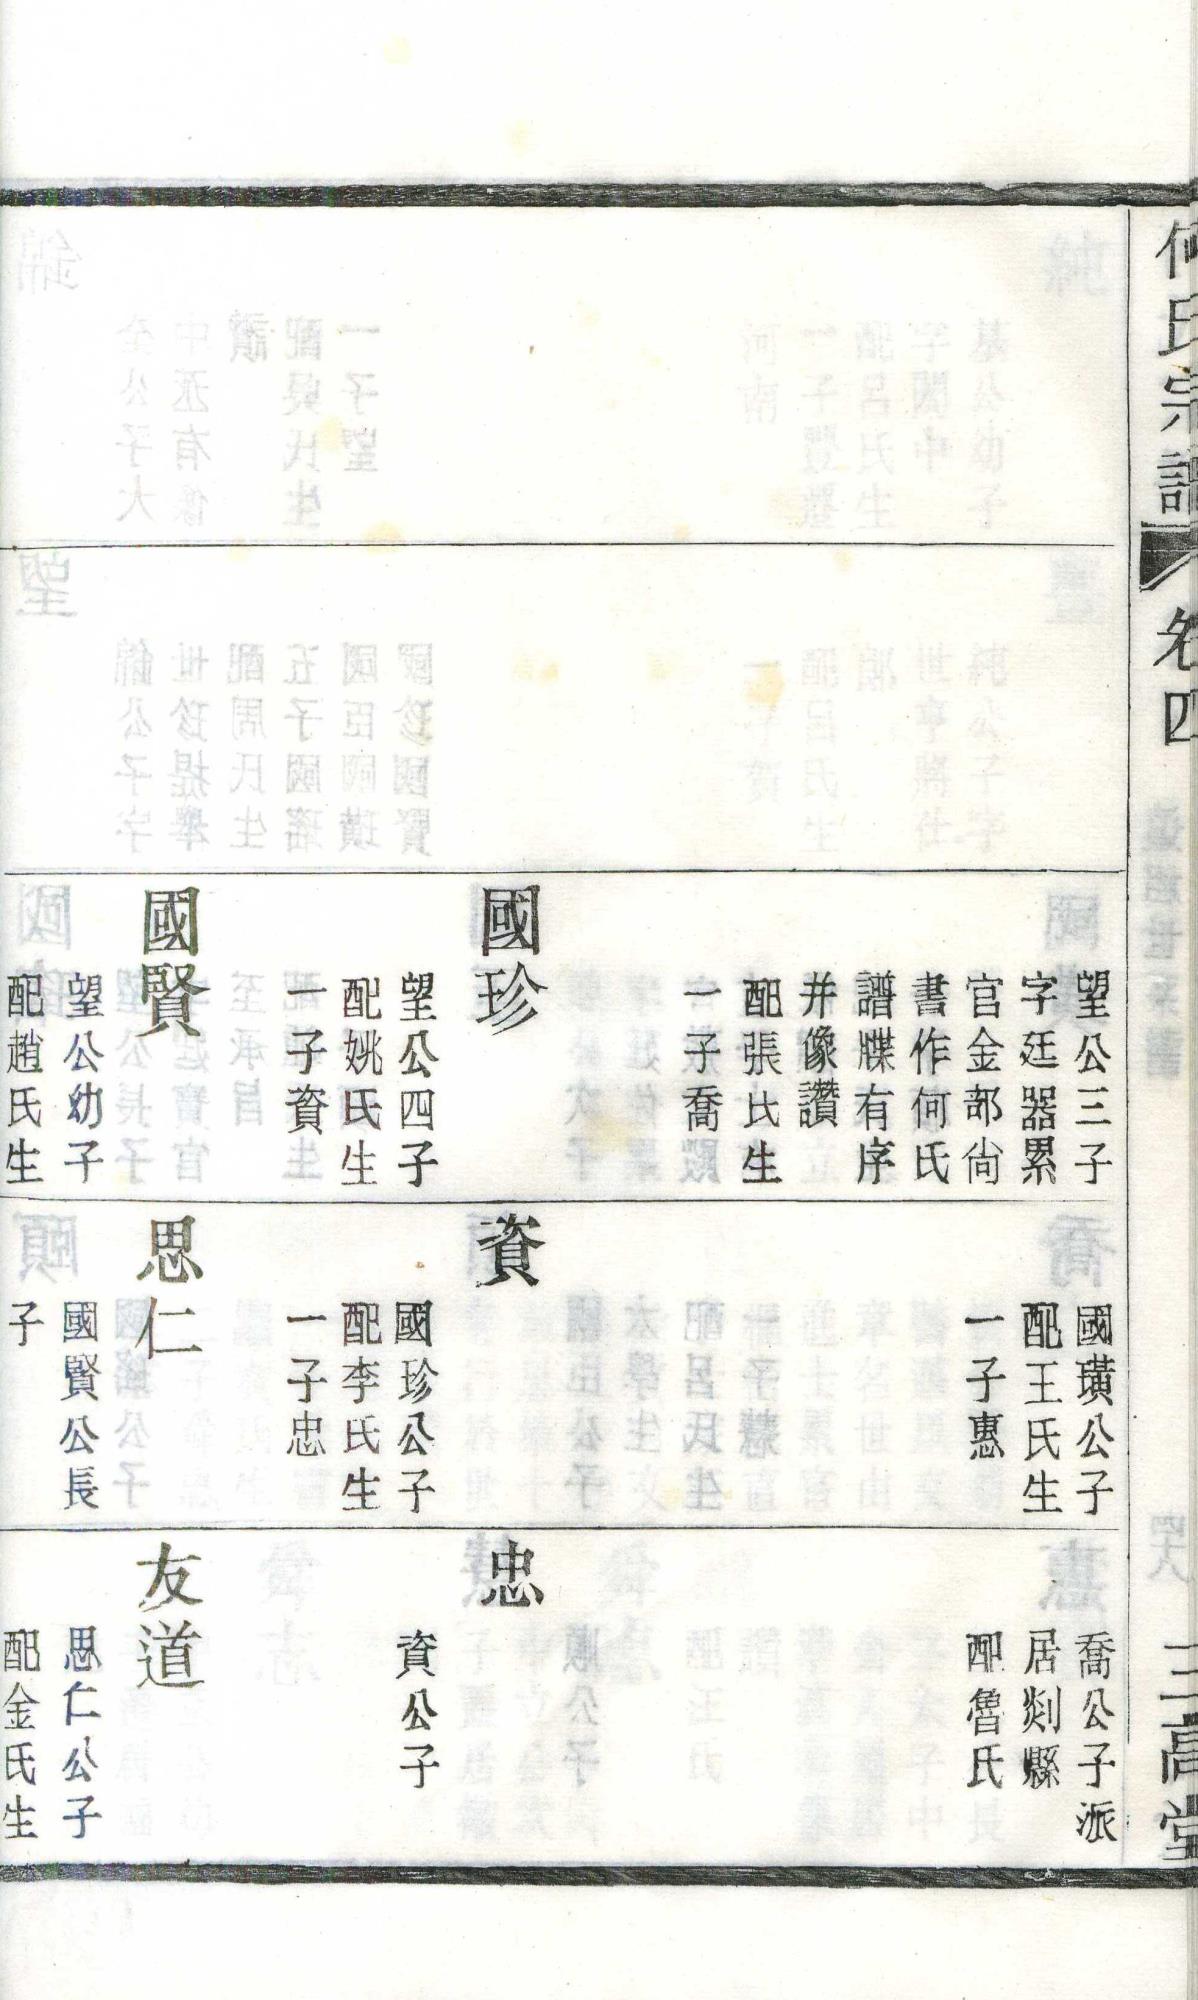 何氏宗譜
卷四
三高堂
望公三子
字廷器累
官金部尙
書作何氏
譜牒有序
并像讚
配張氏生
一子喬
國珍
望公四子
配姚氏生
一子資
國賢
望公幼子
配趙氏生
國璜公子
配王氏生
一子惠
資
國珍公子
配李氏生
一子忠
思仁
國賢公長
子
喬公子派
居剡縣
配魯氏
忠
資公子
友道
思仁公子
配金氏生